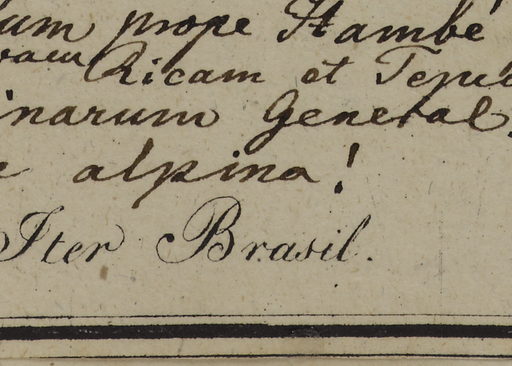 um prope Itambé
vam Ricam et Teju
inarum General.
e alpina!
Iter Brasil.